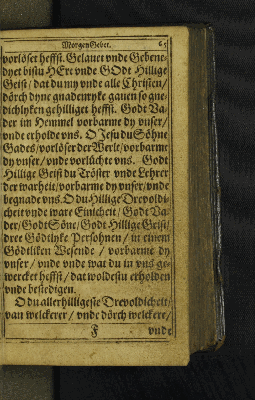 MorgenGebet. 65
vorlöset heffst. Gelauet vnde Gebene-
dyet bistu HEre vnde GOdt Hillige
Geist / dat du my vnde alle Christen /
dörch dyne gnadenryke gauen so gne-
dichlyken gehilliget heffst. Godt Va-
der im Hemmel vorbarme dy vnser /
vnde erholde vns. O Jesu du Söhne
Gades / vorlöser der Werlt / vorbarme
dy vnser / vnde vorlüchte vns. Godt
Hillige Geist du Tröster vnde Lehrer
der warheit / vorbarme dy vnser / vnde
begnade vns. O du Hillige Drevoldi-
cheit vnde ware Einicheit / Godt Va-
der / Godt Söne / Godt Hillige Geist /
dree Gödtlyke Persohnen / in einem
Gödtliken Wesende / vorbarme dy
vnser / vnde vnde wat du in vns ge-
wercket heffst / dat woldestu erholden
vnde bestedigen.
O du allerhilligeste Drevoldicheit /
van welckerer / vnde dörch welckere /
F vnde